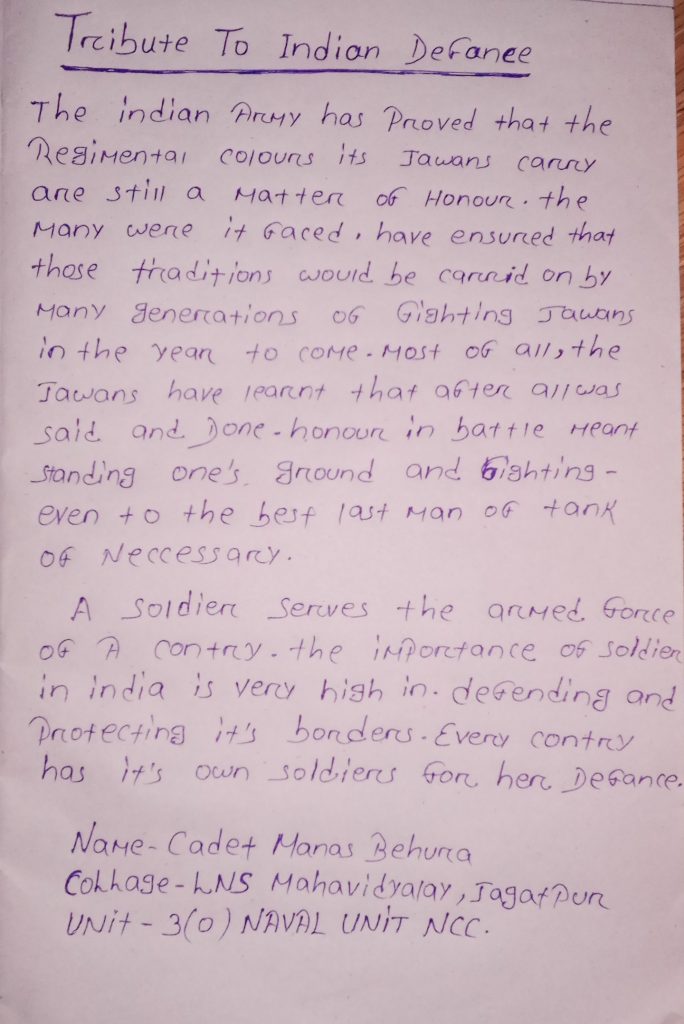 Tribute To Indian Defance
The indian Army has Proved that the
Regimental colours its Jawans carry
are still a Matter of Honour. the
Many were it faced, have ensured that
those traditions would be carrid on by
Many generations of fighting Jawans
in the year to come. Most of all, the
Jawans have learnt that after all was
said and Done - honour in battle Meant
standing one's ground and fighting -
even to the best last Man of tank
of Neccessary.
A soldier serves the armed force
of A contry. the importance of soldier
in india is very high in. defending and
Protecting it's borders. Every contry
has it's own soldiers for her Defance.
Name - Cadet Manas Behura
Collhage - LNS Mahavidyalay, Jagatpur
UNit - 3(O) NAVAL UNIT NCC.